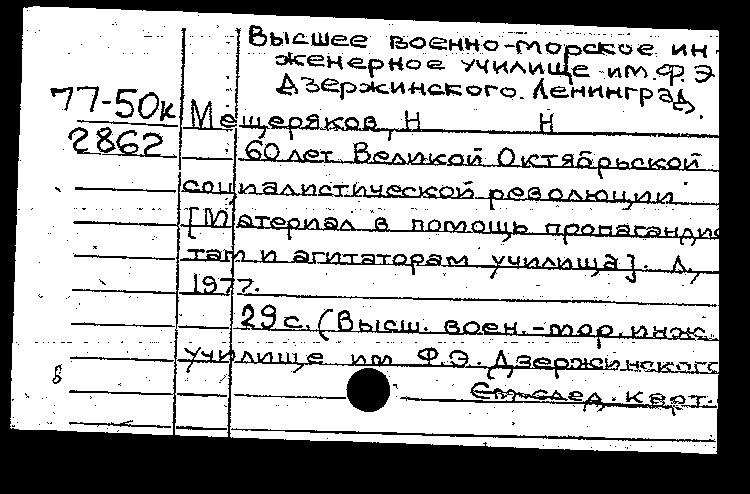 Высшее военно-морское ин-
женерное училище им. Ф.Э
Дзержинского. Ленинград.
77-50к
2862
Мещеряков, Н Н
60 лет Великой Октябрьской
социалистической революции
[Материал в помощь пропагандис
там и агитаторам училища]. Л.,
1977.
29 с. (Высш. воен.-мор. инж.
училище им Ф.Э. Дзержинского
См след. карт.